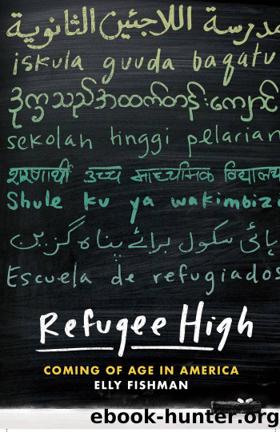 مدرسة اللاجئين الثانوية
iskula guuda baqatu
ဒုက္ခသည်အထက်တန်းကျောင်း
sekolah tinggi pelarian
शरणार्थी उच्च माध्यमिक विद्यालय
Shule ku ya wakimbizi
ہائی سکول برائے پناہ گزین
Escuela de refugiados
Refugee High
COMING OF AGE IN AMERICA
ELLY FISHMAN
ebook-hunter.org